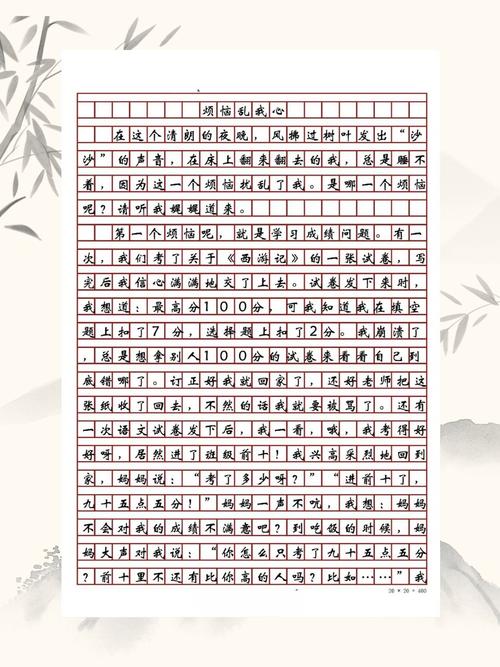 烦恼乱我心
在这个清朗的夜晚，风拂过树叶发出“沙
沙”的声音，在床上翻来翻去的我，总是睡不
着，因为这一个烦恼扰乱了我。是哪一个烦恼
呢？请听我娓娓道来。
第一个烦恼呢，就是学习成绩问题。有一
次，我们考了关于《西游记》的一张试卷，写
完后我信心满满地交了上去。试卷发下来时，
我想道：最高分100分，可我知道我在填空
题上扣了7分，选择题上扣了2分。我崩溃了
，总是想拿别人100分的试卷来看看自己到
底错哪了。订正好我就回家了，还好老师把这
张纸收了回去，不然的话我就要被骂了。还有
一次语文试卷发下后，我一看，哦，我考得好
好呀，居然进了班级前十！我兴高采烈地回到
家，妈妈说：“考了多少呀？”“进前十了，
九十五点五分！”妈妈一声不吭，我想：妈妈
不会对我的成绩不满意吧？到吃饭的时候，妈
妈大声对我说：“你怎么只考了九十五点五分
？前十里不还有比你高的人吗？比如……”我
20 × 20 = 400